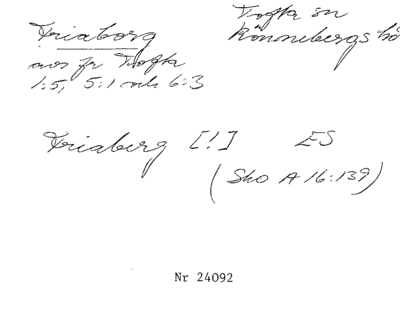 Friaborg
Tofta sn
Rönnebergs hd
avs fr Tofta
1:5, 5:1 och 6:3
Friaberg [!] ES
(Sko A 16:139)
Nr 24092